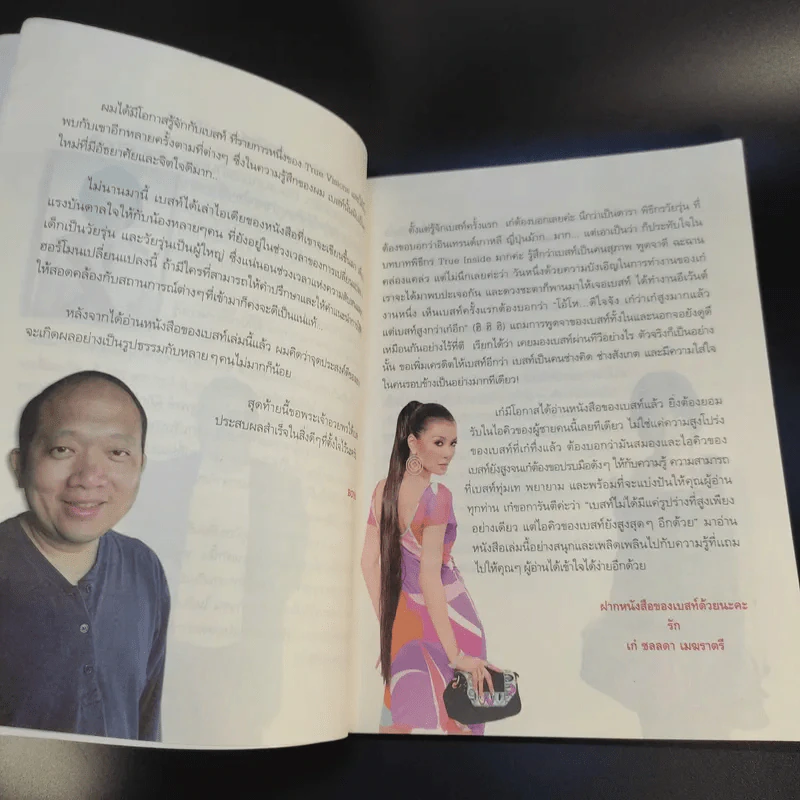 ผมได้มีโอกาสรู้จักกับเบสท์ ที่รายการหนึ่งของ True Visions และได้
พบกับเขาอีกหลายครั้งตามที่ต่างๆ ซึ่งในความรู้สึกของผม เบสท์
ใหม่ที่มีอัธยาศัยและจิตใจดีมาก..
ไม่นานมานี้ เบสท์ได้เล่าไอเดียของหนังสือที่เขาจะเขียนขึ้นมา
แรงบันดาลใจให้กับน้องหลายๆคน ที่ยังอยู่ในช่วงเวลาของการเปลี่ยน
เด็กเป็นวัยรุ่น และวัยรุ่นเป็นผู้ใหญ่ ซึ่งแน่นอนช่วงเวลาแห่งความสับสน
ฮอร์โมนเปลี่ยนแปลงนี้ ถ้ามีใครที่สามารถให้คำปรึกษาและให้คำแนะนำ
ให้สอดคล้องกับสถานการณ์ต่างๆที่เข้ามาก็คงจะดีเป็นแน่แท้...
หลังจากได้อ่านหนังสือของเบสท์เล่มนี้แล้ว ผมคิดว่าจุดประสงค์
จะเกิดผลอย่างเป็นรูปธรรมกับหลายๆคนไม่มากก็น้อย
สุดท้ายนี้ขอพระเจ้าอวยพรให้
ประสบผลสำเร็จในสิ่งดีๆที่ตั้งใจไว้
ตั้งแต่รู้จักเบสท์ครั้งแรก เก๋ต้องบอกเลยค่ะ นึกว่าเป็นดารา พิธีกรวัยรุ่น ที่
ต้องขอบอกว่าอินเทรนด์เกาหลี ญี่ปุ่นม้าก...มาก... แต่เอาเป็นว่า ก็ประทับใจใน
บทบาทพิธีกร True Inside มากค่ะ รู้สึกว่าเบสท์เป็นคนสุภาพ พูดจาดี ฉะฉาน
คล่องแคล่ว แต่ไม่นึกเลยค่ะว่า วันหนึ่งด้วยความบังเอิญในการทำงานของเก๋
เราจะได้มาพบปะเจอกัน และดวงชะตาก็พานมาให้เจอเบสท์ ได้ทำงานอีเว้นต์
งานหนึ่ง เห็นเบสท์ครั้งแรกต้องบอกว่า “โอ้โห...ดีใจจัง เก๋ว่าเก๋สูงมากแล้ว
แต่เบสท์สูงกว่าเก๋อีก” (ฮิ ฮิ ฮิ) แถมการพูดจาของเบสท์ทั้งในและนอกจอยังดูดี
เหมือนกันอย่างไรที่ติ เรียกได้ว่า เคยมองเบสท์ผ่านทีวีอย่างไร ตัวจริงก็เป็นอย่าง
นั้น ขอเพิ่มเครดิตให้เบสท์อีกว่า เบสท์เป็นคนช่างคิด ช่างสังเกต และมีความใส่ใจ
ในคนรอบข้างเป็นอย่างมากทีเดียว!
เก๋มีโอกาสได้อ่านหนังสือของเบสท์แล้ว ยิ่งต้องยอม
รับในไอคิวของผู้ชายคนนี้เลยทีเดียว ไม่ใช่แค่ความสูงโปร่ง
ของเบสท์ที่เก๋ทึ่งแล้ว ต้องบอกว่ามันสมองและไอคิวของ
เบสท์ยังสูงจนเก๋ต้องขอปรบมือดังๆ ให้กับความรู้ ความสามารถ
ที่เบสท์ทุ่มเท พยายาม และพร้อมที่จะแบ่งปันให้คุณผู้อ่าน
ทุกท่าน เก๋ขอการันตีค่ะว่า “เบสท์ไม่ได้มีแค่รูปร่างที่สูงเพียง
อย่างเดียว แต่ไอคิวของเบสท์ยังสูงสุดๆ อีกด้วย” มาอ่าน
หนังสือเล่มนี้อย่างสนุกและเพลิดเพลินไปกับความรู้ที่แถม
ไปให้คุณๆ ผู้อ่านได้เข้าใจได้ง่ายอีกด้วย
ฝากหนังสือของเบสท์ด้วยนะคะ
รัก
เก๋ ชลลดา เมฆราตรี